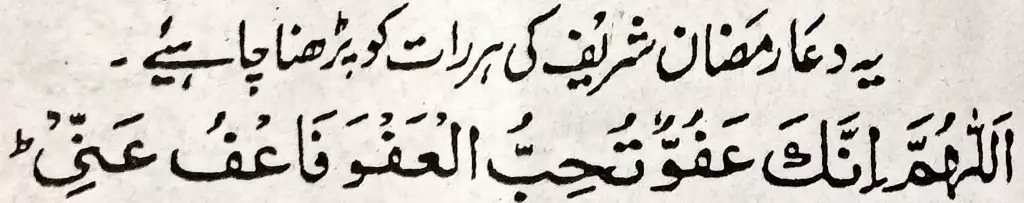 یہ دعا رمضان شریف کی ہر رات کو پڑھنا چاہیئے ۔
اَللّٰهُمَّ اِنَّكَ عَفُوٌّ تُحِبُّ الْعَفْوَ فَاعْفُ عَنِّیْ ؕ